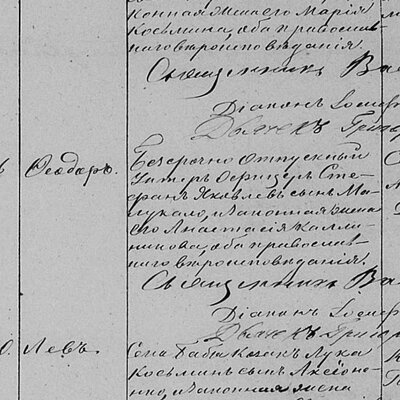 конная жена его Марія
Козьмина, оба православ-
наго вѣроисповѣданія.
Священникъ Ва
Діаконъ Іосиф
Дьячекъ Григор
Ѳеодоръ.
Безсрочно Отпускный
Унтеръ Офицеръ Сте-
фанъ Яковлевъ сынъ Ма-
цукало, и законная жена
его Анастасія Калли-
никова, оба православ-
наго вѣроисповѣданія.
Священникъ Ва
Діаконъ Іосиф
Дьячекъ Григор
Левъ.
Козакъ Лука
Козьминъ сынъ Аксіоне-
нко, и законная жена